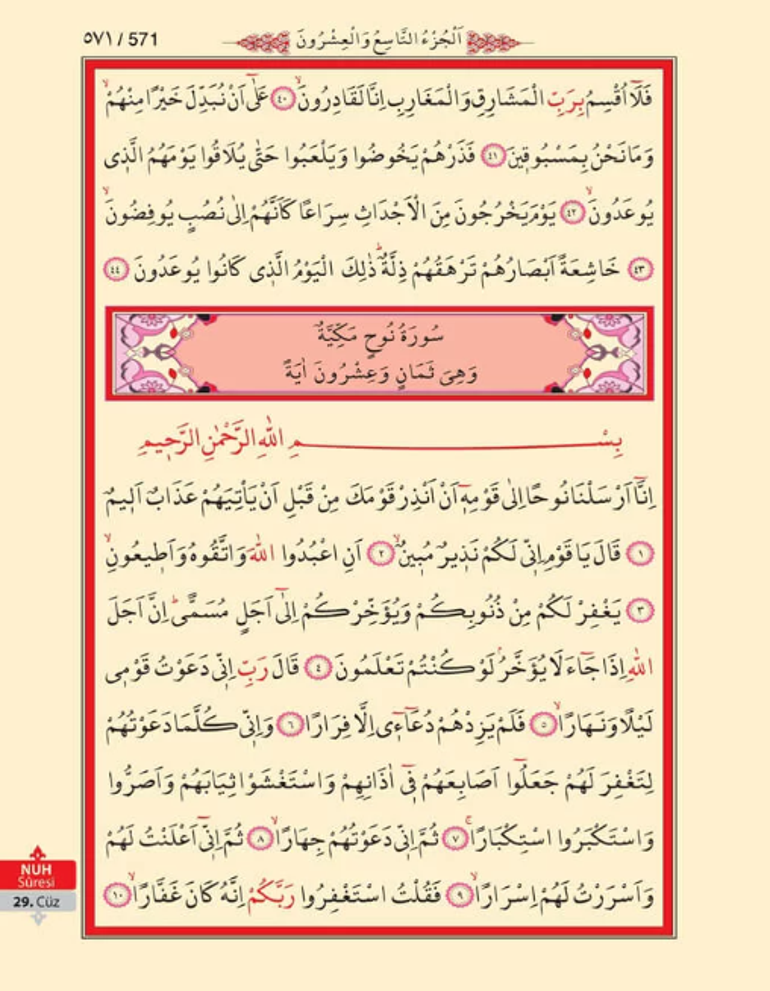 ٥٧١ / 571
اَلْجُزْءُ التَّاسِعُ وَالْعِشْرُونَ
فَلَٓا اُقْسِمُ بِرَبِّ الْمَشَارِقِ وَالْمَغَارِبِ اِنَّا لَقَادِرُونَۙ ٤٠ عَلٰٓى اَنْ نُبَدِّلَ خَيْرًا مِنْهُمْۙ
وَمَا نَحْنُ بِمَسْبُوق۪ينَ ٤١ فَذَرْهُمْ يَخُوضُوا وَيَلْعَبُوا حَتّٰى يُلَاقُوا يَوْمَهُمُ الَّذ۪ى
يُوعَدُونَۙ ٤٢ يَوْمَ يَخْرُجُونَ مِنَ الْاَجْدَاثِ سِرَاعًا كَاَنَّهُمْ اِلٰى نُصُبٍ يُوفِضُونَۙ
٤٣ خَاشِعَةً اَبْصَارُهُمْ تَرْهَقُهُمْ ذِلَّةٌۜ ذٰلِكَ الْيَوْمُ الَّذ۪ى كَانُوا يُوعَدُونَ ٤٤
سُورَةُ نُوحٍ مَكِّيَّةٌ
وَهِىَ ثَمَانٍ وَعِشْرُونَ اٰيَةً
بِسْمِ اللّٰهِ الرَّحْمٰنِ الرَّح۪يمِ
اِنَّٓا اَرْسَلْنَا نُوحًا اِلٰى قَوْمِه۪ٓ اَنْ اَنْذِرْ قَوْمَكَ مِنْ قَبْلِ اَنْ يَأْتِيَهُمْ عَذَابٌ اَل۪يمٌ
١ قَالَ يَا قَوْمِ اِنّ۪ى لَكُمْ نَذ۪يرٌ مُب۪ينٌۙ ٢ اَنِ اعْبُدُوا اللّٰهَ وَاتَّقُوهُ وَاَط۪يعُونِۙ
٣ يَغْفِرْ لَكُمْ مِنْ ذُنُوبِكُمْ وَيُؤَخِّرْكُمْ اِلٰٓى اَجَلٍ مُسَمًّىۜ اِنَّ اَجَلَ
اللّٰهِ اِذَا جَٓاءَ لَا يُؤَخَّرُۢ لَوْ كُنْتُمْ تَعْلَمُونَ ٤ قَالَ رَبِّ اِنّ۪ى دَعَوْتُ قَوْم۪ى
لَيْلًا وَنَهَارًاۙ ٥ فَلَمْ يَزِدْهُمْ دُعَٓاء۪ٓى اِلَّا فِرَارًا ٦ وَاِنّ۪ى كُلَّمَا دَعَوْتُهُمْ
لِتَغْفِرَ لَهُمْ جَعَلُٓوا اَصَابِعَهُمْ ف۪ٓى اٰذَانِهِمْ وَاسْتَغْشَوْا ثِيَابَهُمْ وَاَصَرُّوا
وَاسْتَكْبَرُوا اسْتِكْبَارًاۚ ٧ ثُمَّ اِنّ۪ى دَعَوْتُهُمْ جِهَارًاۙ ٨ ثُمَّ اِنّ۪ٓى اَعْلَنْتُ لَهُمْ
وَاَسْرَرْتُ لَهُمْ اِسْرَارًاۙ ٩ فَقُلْتُ اسْتَغْفِرُوا رَبَّكُمْ اِنَّهُ كَانَ غَفَّارًاۙ ١٠
NUH
Sûresi
29. Cüz